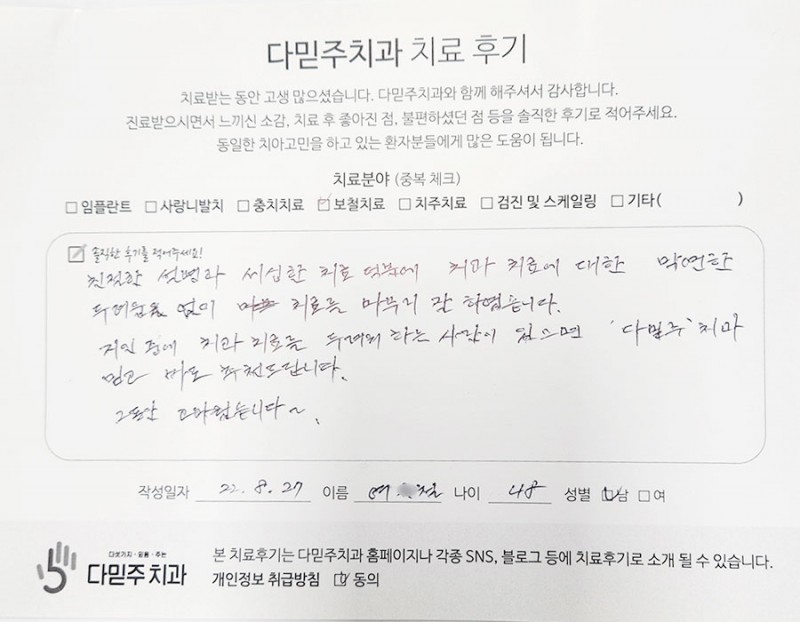 다믿주치과 치료 후기
치료받는 동안 고생 많으셨습니다. 다믿주치과와 함께 해주셔서 감사합니다.
진료받으시면서 느끼신 소감, 치료 후 좋아진 점, 불편하셨던 점 등을 솔직한 후기로 적어주세요.
동일한 치아고민을 하고 있는 환자분들에게 많은 도움이 됩니다.
치료분야 (중복 체크)
☐ 임플란트 ☐ 사랑니발치 ☐ 충치치료 ☑ 보철치료 ☐ 치주치료 ☐ 검진 및 스케일링 ☐ 기타( )
솔직한 후기를 적어주세요!
친절한 설명과 세심한 치료 덕분에 치과 치료에 대한 막연한
두려움 없이 치료를 마무리 잘 하였습니다.
지인 중에 치과 치료를 두려워 하는 사람이 있으면 '다믿주' 치과
믿고 바로 추천드립니다.
그동안 고마웠습니다~.
작성일자 22. 8. 27 이름 철 나이 48 성별 ☑남 ☐여
다섯가지·믿음·주는
다믿주치과
본 치료후기는 다믿주치과 홈페이지나 각종 SNS, 블로그 등에 치료후기로 소개 될 수 있습니다.
개인정보 취급방침 ☑ 동의